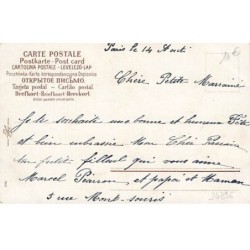 CARTE POSTALE
Postkarte - Post card
CARTOLINA POSTALE - LEVELEZŐ-LAP
ОТКРЫТОЕ ПИСЬМО.
Tarjeta postal - Cartão postal
Brefkort - Brevkort - Brevkort
Paris le 14 Août
Chère Petite Marraine
Je te souhaite une bonne et heureuse Fête
et bien embrasser Mon Cher Parrain
ton petit filleul qui vous aime
Marcel et papa et Maman
3 rue Mont-souris